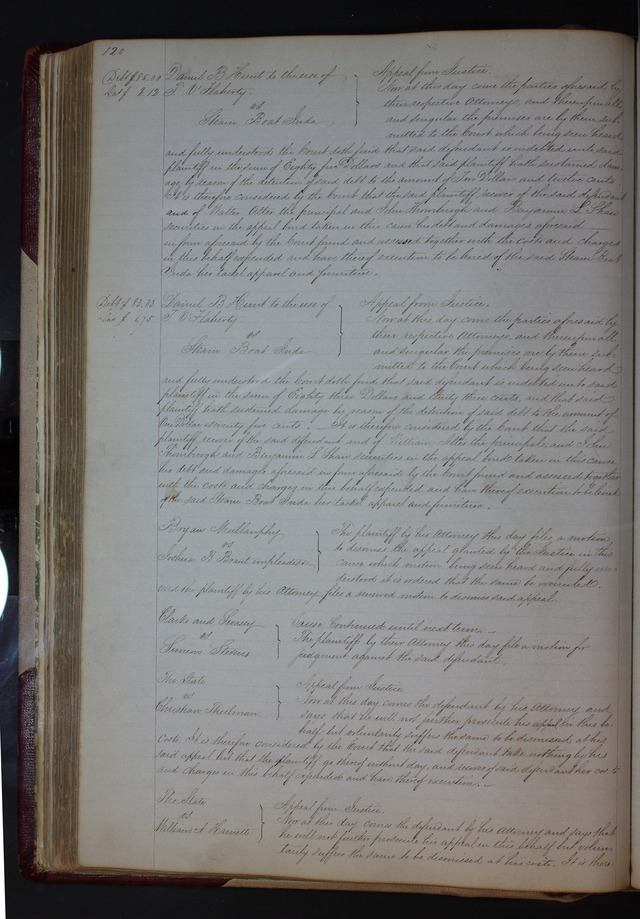 120
Debt $85.00
Dam $ 2.12
Daniel B Hunt to the use of
T O'Flaherty.
vs
Steam Boat Inda
Appeal from Justice.
Now at this day come the parties aforesaid by
their respective Attorneys, and thereupon all
and singular the premises are by them sub-
mitted to the Court which being seen heard
and fully understood the Court doth find that said defendant is indebted unto said
plaintiff in the sum of Eighty five Dollars and that said plaintiff hath sustained dam-
age by reason of the detention of said debt to the amount of Two Dollars and twelve cents
It is therefore considered by the Court that the said plaintiff recover of the said defendant
and of the principal and John Thornburgh and Benjamin L Shaw
securities in the appeal bond taken in this case his debt and damages aforesaid
in form aforesaid by the Court found and assessed together with the costs and charges
in this behalf expended and have thereof execution to be levied of the said Steam Boat
Inda her tackel apparel and furniture.
Debt $ 83.33
Dam $ 1.75
Daniel B Hunt to the use of
T O'Flaherty
vs
Steam Boat Inda
Appeal from Justice.
Now at this day come the parties aforesaid by
their respective Attorneys, and thereupon all
and singular the premises are by them sub-
mitted to the Court which being seen heard
and fully understood the Court doth find that said defendant is indebted unto said
plaintiff in the sum of Eighty three Dollars and thirty three cents, and that said
plaintiff hath sustained damage by reason of the detention of said debt to the amount of
One Dollar seventy five cents. It is therefore considered by the Court that the said
plaintiff recover of the said defendant and of William the principal, and John
Thornburgh and Benjamin L Shaw securities in the appeal bond taken in this cause
his debt and damages aforesaid in form aforesaid by the Court found and assessed together
with the costs and charges in this behalf expended and have thereof execution to be levied
of the said Steam Boat Inda her tackel apparel and furniture.
Bryan Mullanphy
vs
Joshua B Brant impleaded &c
The plaintiff by his Attorney this day files a motion
to dismiss the appeal granted by the Justice in this
cause which motion being seen heard and fully un-
derstood it is ordered that the same be overruled.
and the plaintiff by his Attorney files a renewed motion to dismiss said appeal.
Clarke and
vs
Simeon
Cause Continued until next term.
The plaintiff by their Attorney this day file a motion for
judgment against the said defendant.
The State
vs
Christian Thielman
Appeal from Justice
Now at this day comes the defendant by his Attorney and
says that he will not further prosecute his appeal in this be-
half but voluntarily suffers the same to be dismissed, at his
costs. It is therefore considered by the Court that the said defendant take nothing by his
said appeal but that the plaintiff go thereof without day, and recover of said defendant her costs
and charges in this behalf expended and have thereof execution.
The State
vs
William A
Appeal from Justice.
Now at this day comes the defendant by his Attorney and says that
he will not further prosecute his appeal in this behalf but volun-
tarily suffers the same to be dismissed at his costs. It is there-